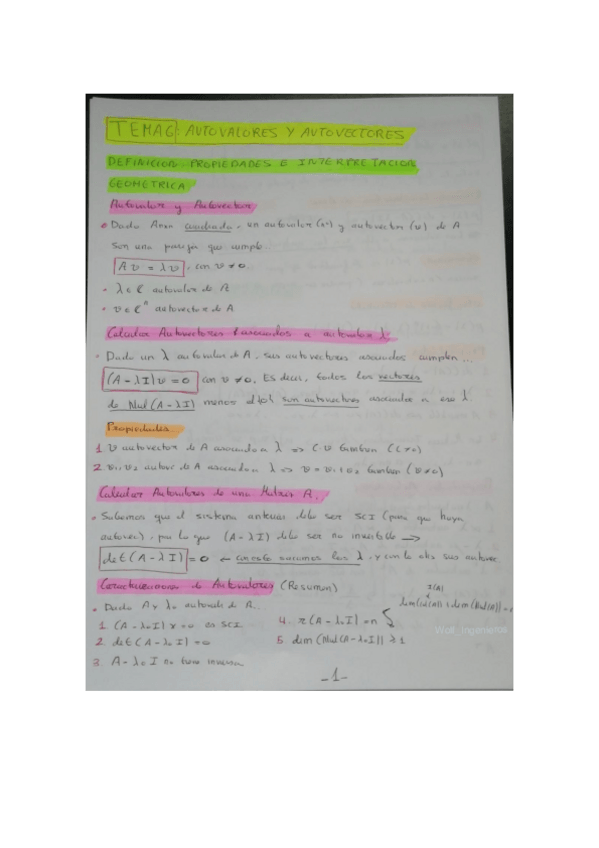 TEMA 6: AUTOVALORES Y AUTOVECTORES
DEFINICION, PROPIEDADES E INTERPRETACION
GEOMETRICA
Autovalor y Autovector
Dada Anxn cuadrada, un autovalor (λ) y autovector (v) de A
son una pareja que cumple
Av = λv, con v ≠ 0.
λ ∈ C autovalor de A
v ∈ Cⁿ autovector de A
Calcular Autovectores asociados a autovalor λ
Dado un λ autovalor de A, sus autovectores asociados cumplen...
(A - λI)v = 0 con v ≠ 0. Es decir, todos los vectores
de Nul(A - λI) menos el {0} son autovectores asociados a ese λ.
Propiedades.
1. v autovector de A asociado a λ => c·v tambien (c ≠ 0)
2. v₁, v₂ autovec de A asociado a λ => v = v₁ + v₂ tambien (v ≠ 0)
Calcular Autovalores de una Matriz A.
Sabemos que el sistema anterior debe ser SCI (para que haya
autovec), por lo que (A - λI) debe ser no invertible →
det(A - λI) = 0 ← con este sacamos los λ, y con la otra sus autovec
Caracterizacion de Autovalores (Resumen)
Dada A y λ₀ autovalor de A...
1. (A - λ₀I)x = 0 es SCI
2. det(A - λ₀I) = 0
3. A - λ₀I no tiene inversa
4. r(A - λ₀I) < n
5. dim(Nul(A - λ₀I)) ≥ 1
r(A)
dim(Col(A)) + dim(Nul(A)) = n
Wall_Ingenieros
-1-